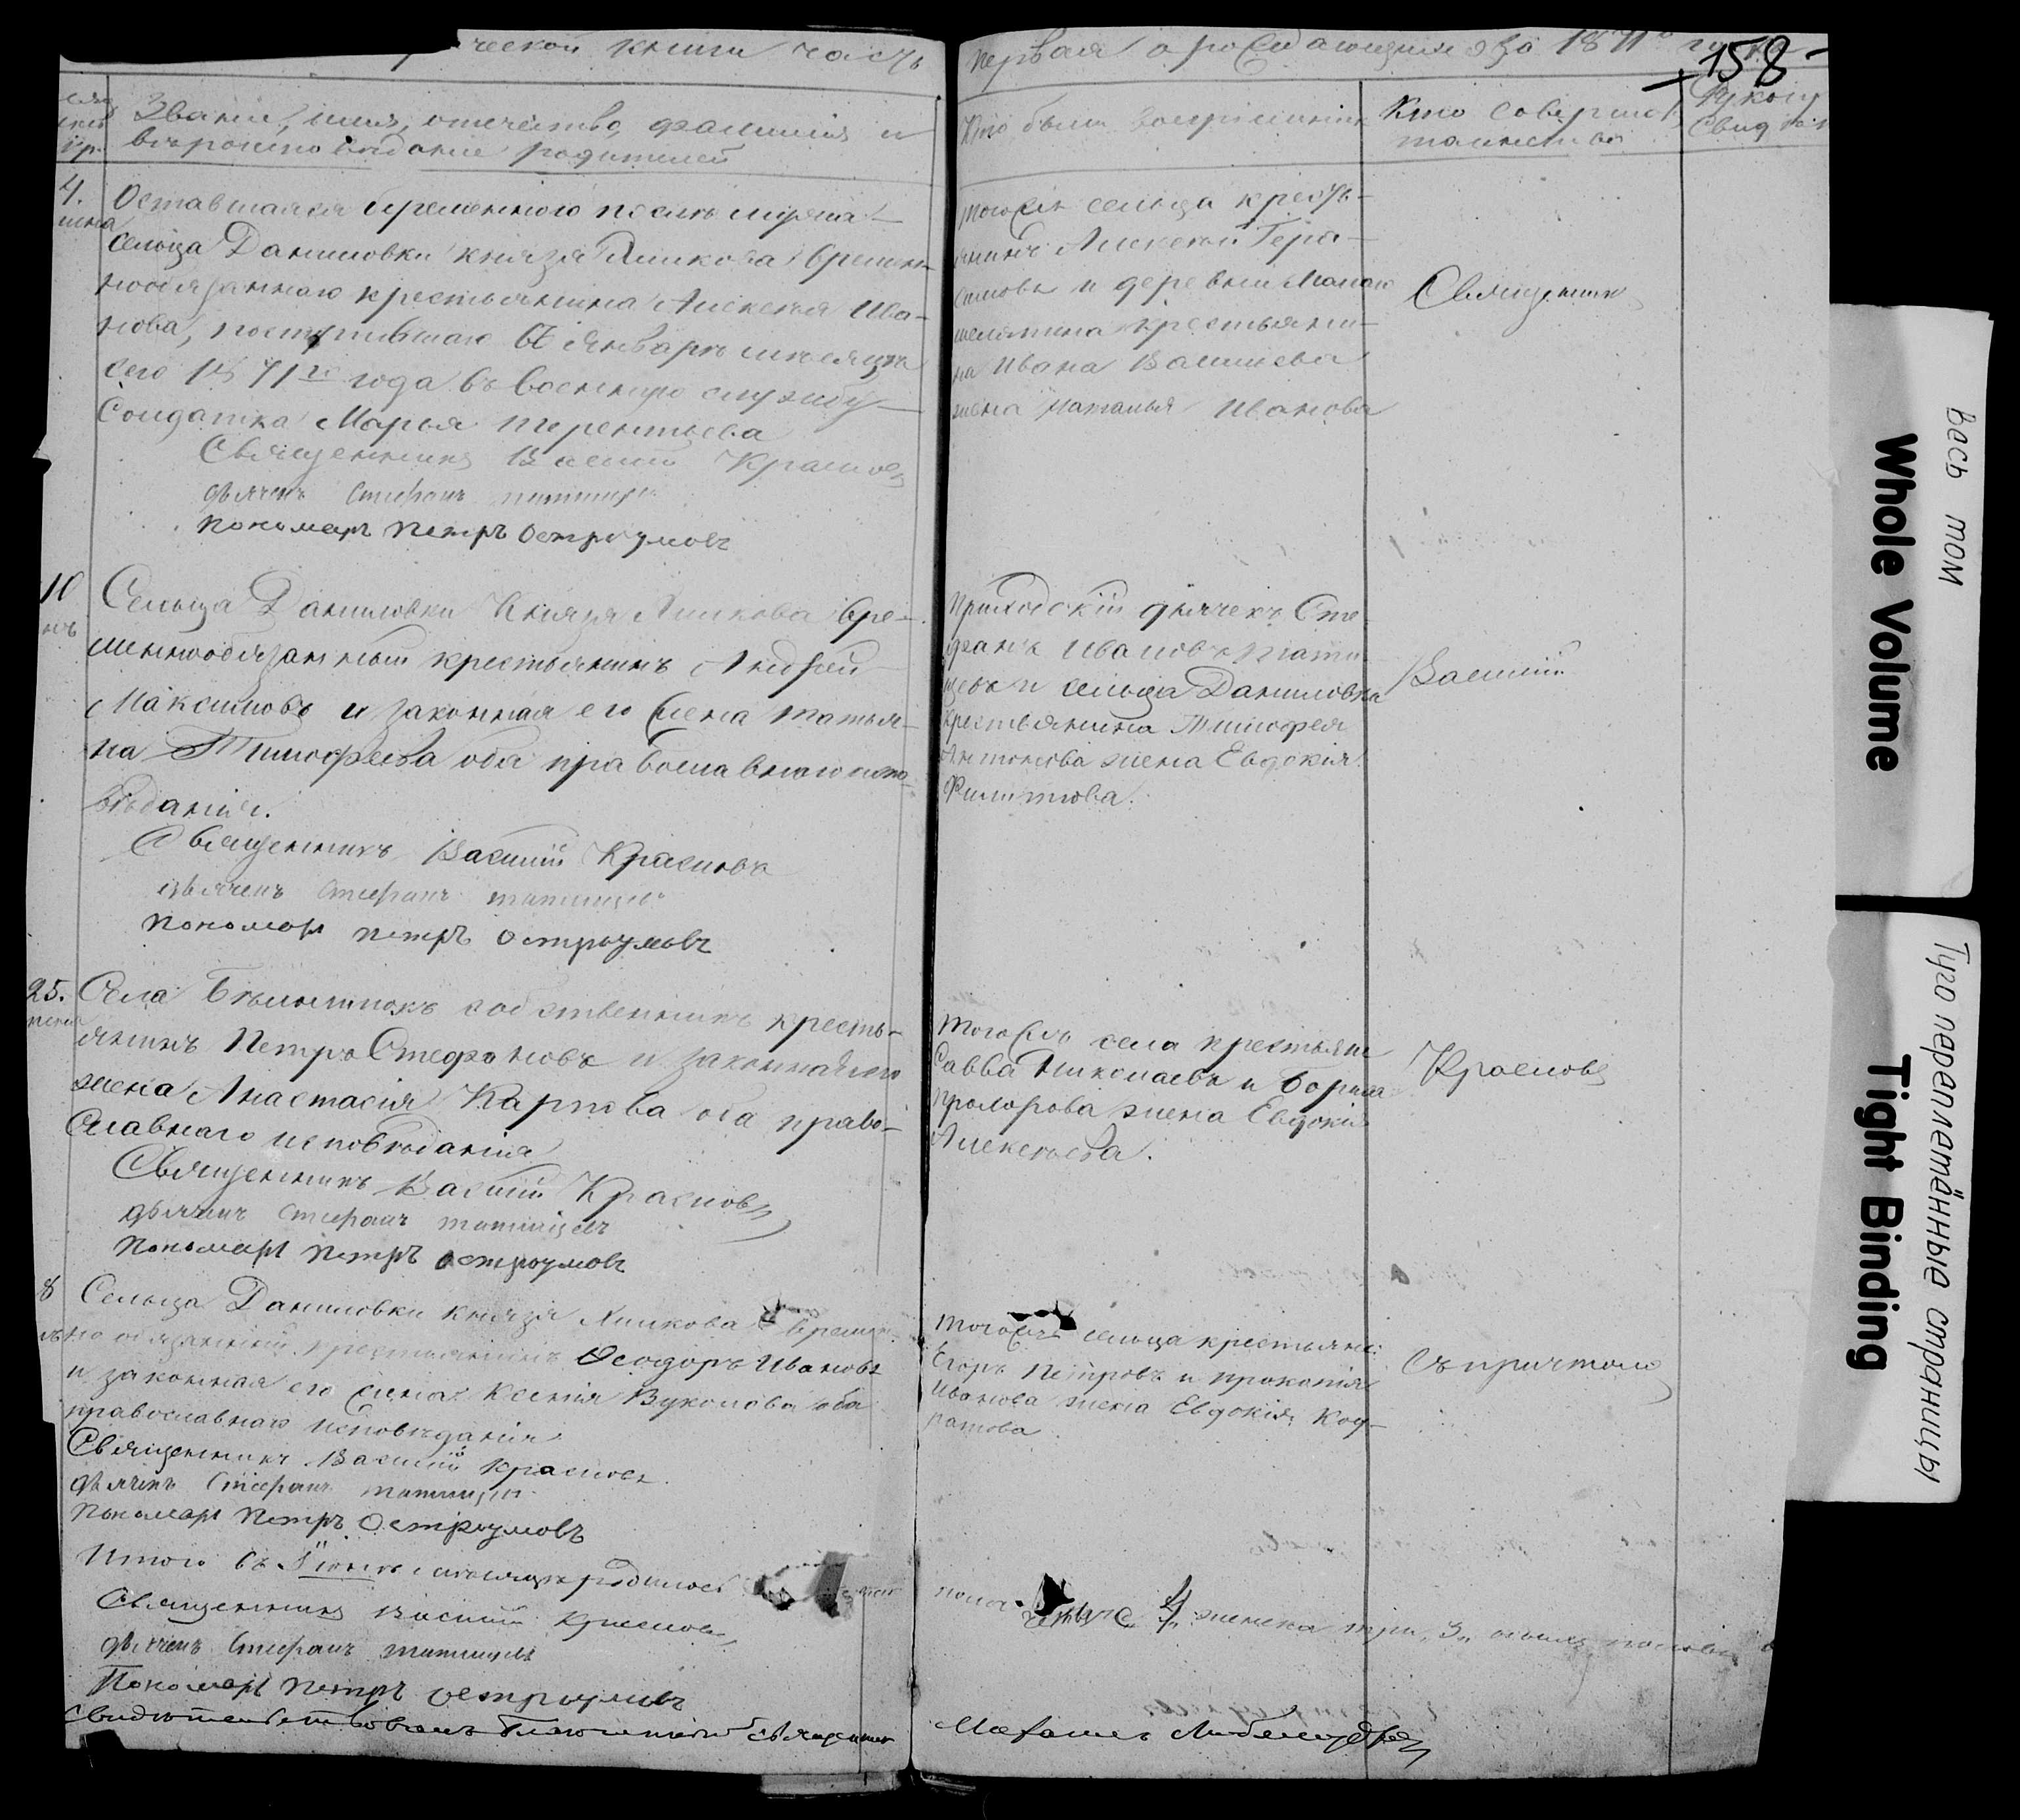 ческой книги часть
первая о рождающихся за 1871го
158
Званіе, имя, отечество, фамилія и
вѣроисповѣданіе родителей
Кто были воспріемники
Кто совершалъ
таинство
4.
Оставшаяся беременною послѣ мужа
сельца Даниловки князя времен-
нообязаннаго крестьянина Алексѣя Ива-
нова, поступившаго въ Январѣ мѣсяцѣ
сего 1871го года въ военную службу
Солдатка Марья Терентьева
Священникъ Василій Красновъ
дьячекъ Стефанъ
пономарь Петръ Остроумовъ
тогоже сельца кресть-
янинъ Алексѣй Гера-
симовъ и деревни
крестьяни-
на Ивана Васильева
жена Наталья Иванова
Священникъ
10
Сельца Даниловки Князя вре-
меннообязанный крестьянинъ Андрей
Максимовъ и законная его жена Татья-
на Тимофеева оба православнаго испо-
вѣданія.
Священникъ Василій Красновъ
дьячекъ Стефанъ
пономарь Петръ Остроумовъ
Приходскій дьячекъ Сте-
фанъ Ивановъ Тати-
щевъ и сельца Даниловки
крестьянина Тимофея
Антонова жена Евдокія
Филиппова.
Василій
25.
Села собственникъ кресть-
янинъ Петръ Стефановъ и законная его
жена Анастасія Карпова оба право-
славнаго исповѣданія
Священникъ Василій Красновъ
дьячекъ Стефанъ Татищевъ
пономарь Петръ Остроумовъ
тогожъ села крестьяне
Савва Николаевъ и Бориса
Прохорова жена Евдокія
Алексѣева.
Красновъ
8
Сельца Даниловки князя времен-
но обязанный крестьянинъ Ѳеодоръ Ивановъ
и законная его жена Ксенія Вуколова оба
православнаго исповѣданія
Священникъ Василій Красновъ
дьячекъ Стефанъ
пономарь Петръ Остроумовъ
тогожъ сельца крестьяне:
Егоръ Петровъ и Прокопія
Иванова жена Евдокія Код-
ратова
съ причтомъ
Итого въ іюнѣ мѣсяцѣ родилось
пола 4 женска три 3
Священникъ Василій Красновъ
дьячекъ Стефанъ Татищевъ
Пономарь Петръ Остроумовъ
Свидѣтельствовалъ благочинный священникъ
Любомудровъ
Весь том
Whole Volume
Туго переплетённые страницы
Tight Binding